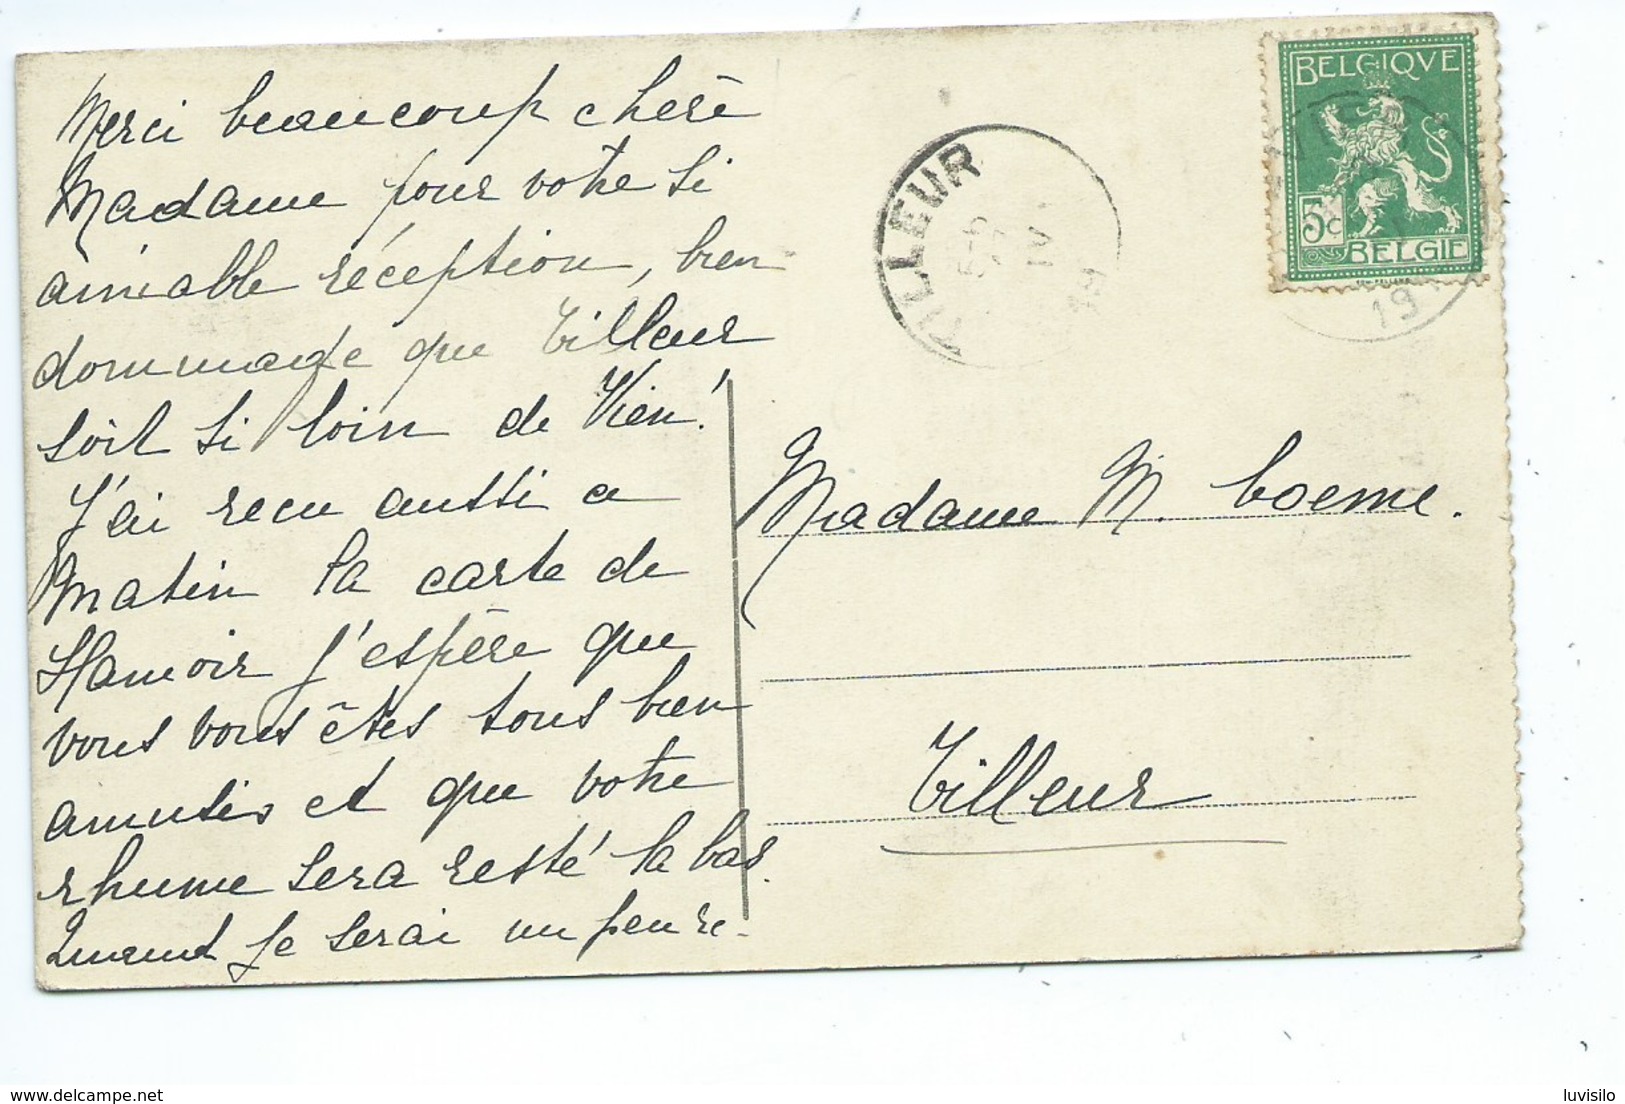 Merci beaucoup chère
Madame pour votre si
aimable réception, bien
dommage que Tilleur
soit si loin de Vien!
J'ai recu aussi ce
matin la carte de
Hamoir j'espère que
vous vous êtes tous bien
amusés et que votre
rhume sera resté la bas.
Quand je serai un peu re-
TILLEUR
5-6
IV
BELGIQVE
5c
BELGIE
19
Madame M. Coeme.
Tilleur
luvisilo